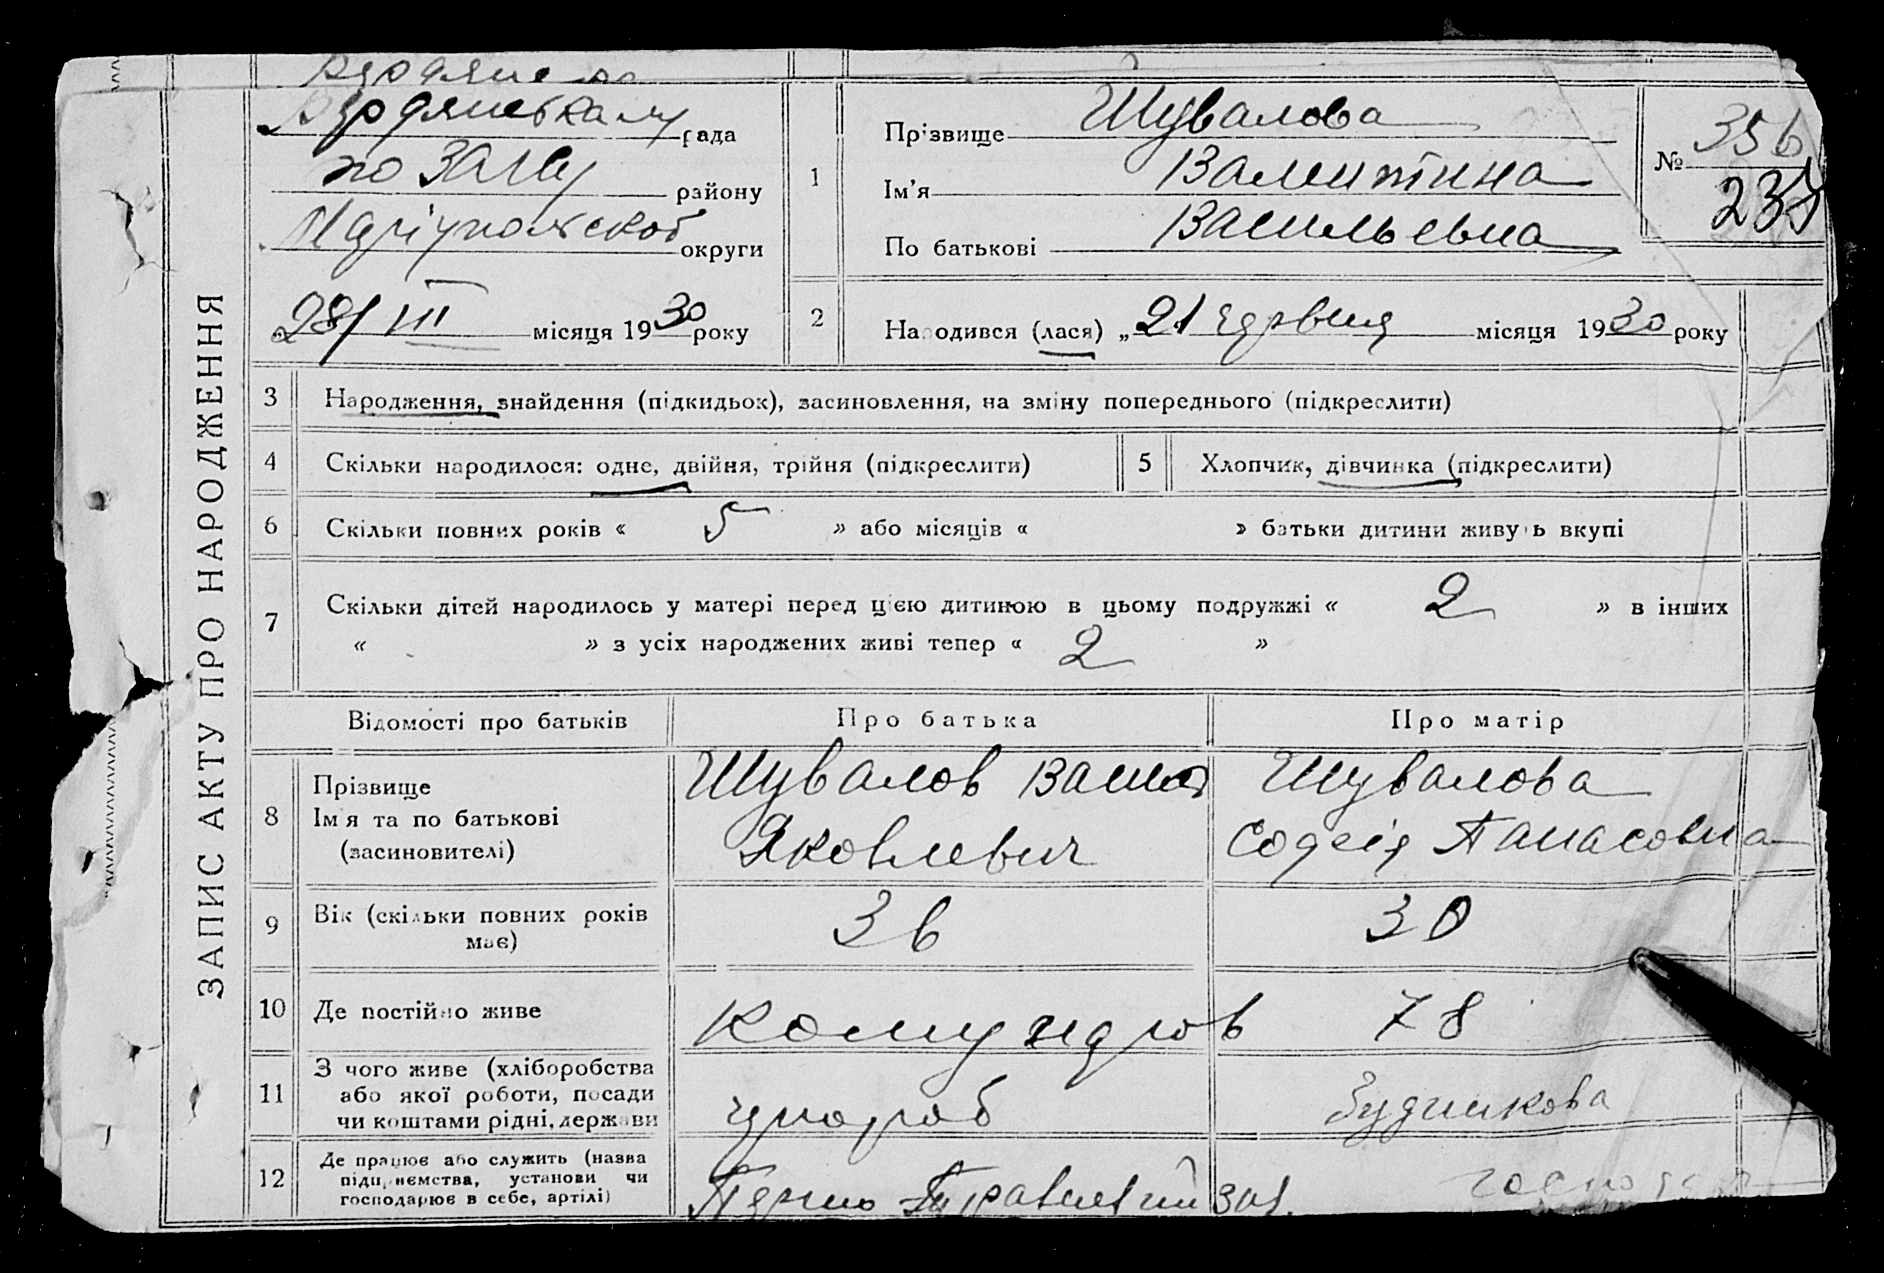 ЗАПИС АКТУ ПРО НАРОДЖЕННЯ
рада
по ЗАГСу району
округи
28/III місяця 1930 року
1
Прізвище Шувалова
Ім'я Валентина
По батькові Васильевна
№ 356
2
Народився (лася) „21 червня місяця 1930 року
3
Народження, знайдення (підкидьок), засиновлення, на зміну попереднього (підкреслити)
4
Скільки народилося: одне, двійня, трійня (підкреслити)
5
Хлопчик, дівчинка (підкреслити)
6
Скільки повних років « 5 » або місяців « » батьки дитини живуть вкупі
7
Скільки дітей народилось у матері перед цією дитиною в цьому подружжі « 2 » в інших
« » з усіх народжених живі тепер « 2 »
Відомості про батьків
Про батька
Про матір
8
Прізвище
Ім'я та по батькові
(засиновителі)
Шувалов
Яковлевич
Шувалова
Софія Панасовна
9
Вік (скільки повних років
має)
36
30
10
Де постійно живе
78
11
З чого живе (хліборобства
або якої роботи, посади
чи коштами рідні, держави
чнораб
12
Де працює або служить (назва
підприємства, установи чи
господарює в себе, артілі)